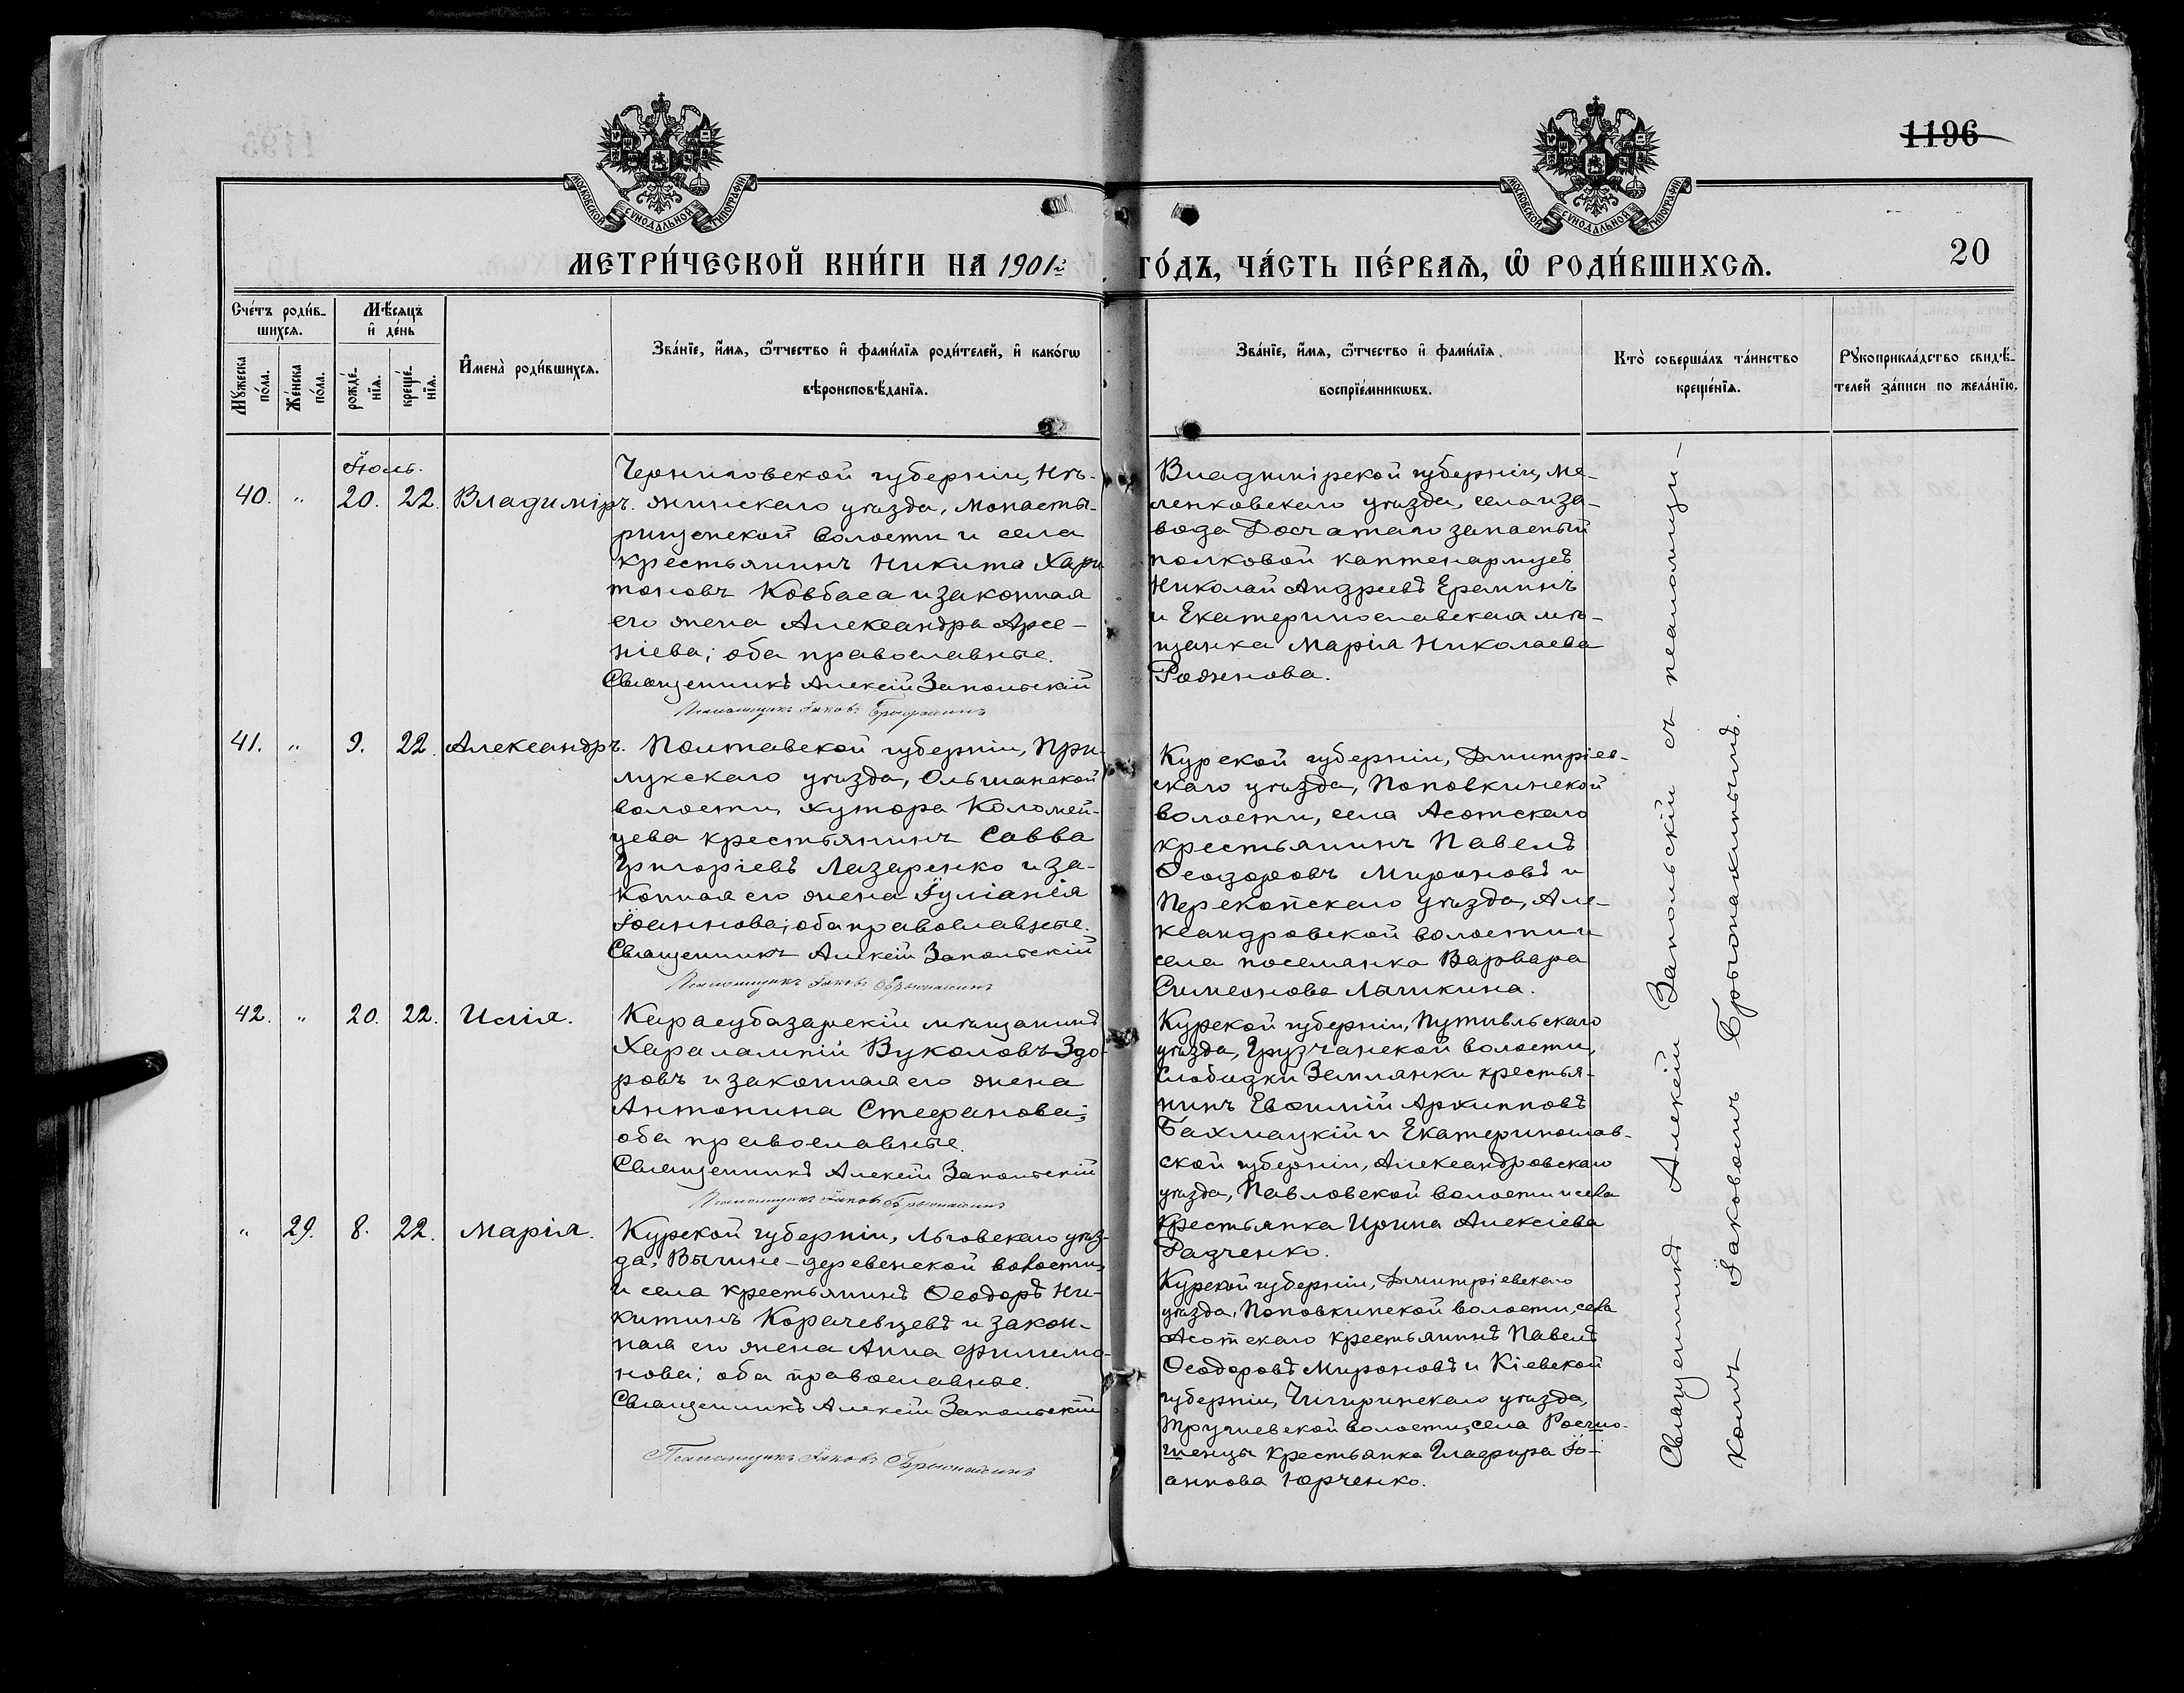 1196
20
МОСКОВСКОЙ СѴНОДАЛЬНОЙ ТИПОГРАФІИ
МОСКОВСКОЙ СѴНОДАЛЬНОЙ ТИПОГРАФІИ
МЕТРИ́ЧЕСКОЙ КНИ́ГИ НА 1901й ГО́ДЪ, ЧА́СТЬ ПЕ́РВАѦ, Ѡ҆ РОДИ́ВШИХСѦ.
Сче́тъ роди́в-
шихсѧ.
Мꙋ́жеска
по́ла.
Же́нска
по́ла.
Мѣ́сяцъ
и҆ де́нь
рожде́-
нїѧ.
креще́-
нїѧ.
И҆мена̀ роди́вшихсѧ.
Зва́нїе, и҆́мя, ѻ҆́тчество и҆ фами́лїѧ роди́телей, и҆ како́гѡ
вѣроисповѣ́данїѧ.
Зва́нїе, и҆́мя, ѻ҆́тчество и҆ фами́лїѧ
воспрїе́мникѡвъ.
Кто̀ соверша́лъ та́инство
креще́нїѧ.
Рꙋкоприкла́дство свидѣ́-
телей за́писи по жела́нїю.
Іюль.
40. " 20. 22. Владиміръ.
Черниговской губерніи, Нѣ-
жинскаго уѣзда, Монасты-
рищенской волости и села
крестьянинъ Никита Хари
тоновъ Ковбаса и законная
его жена Александра Арсе-
ніева; оба православные.
Священникъ Алексій Запольскій
Псаломщикъ Іаковъ
Владимірской губерніи, Ме-
ленковскаго уѣзда, села и за-
вода Досчатаго запасный
полковой каптенармусъ
Николай Андреевъ Ереминъ
и Екатеринославская мѣ-
щанка Марія Николаева
41. " 9. 22. Александръ.
Полтавской губерніи, При-
лукскаго уѣзда, Ольшанской
волости, хутора Коломей-
цева крестьянинъ Савва
Григоріевъ Лазаренко и за-
конная его жена Іуліанія
Іоаннова; оба православные.
Священникъ Алексій Запольскій
Псаломщикъ Іаковъ
Курской губерніи, Дмитріев-
скаго уѣзда, Поповкинской
волости, села Асотскаго
крестьянинъ Павелъ
Ѳеодоровъ Мироновъ и
Перекопскаго уѣзда, Але-
ксандровской волости и
села поселянка Варвара
Симеонова
42. " 20. 22. Илія.
Карасубазарскій мѣщанинъ
Харалампій Вуколовъ Здо-
ровъ и законная его жена
Антонина Стефанова;
оба православные.
Священникъ Алексій Запольскій
Псаломщикъ Іаковъ
Курской губерніи, Путивльскаго
уѣзда, Грузчанской волости,
слободки Землянки крестья-
нинъ Евѳимій Архипповъ
Бахмацкій и Екатеринослав-
ской губерніи, Александровскаго
уѣзда, Павловской волости и села
крестьянка Ирина Алексіева
Радченко.
" 29. 8. 22. Марія.
Курской губерніи, Льговскаго уѣз-
да, деревенской волости,
и села крестьянинъ Ѳеодоръ Ни-
китинъ Корачевцевъ и закон-
ная его жена Анна Филимо-
нова; оба православные.
Священникъ Алексій Запольскій
Псаломщикъ Іаковъ
Курской губерніи, Дмитріевскаго
уѣзда, Поповкинской волости, села
Асотскаго крестьянинъ Павелъ
Ѳеодоровъ Мироновъ и Кіевской
губерніи, Чигиринскаго уѣзда,
волости, села
крестьянка Гликерія Іо-
аннова Юрченко.
Священникъ Алексій Запольскій съ псаломщи-
комъ Іаковомъ